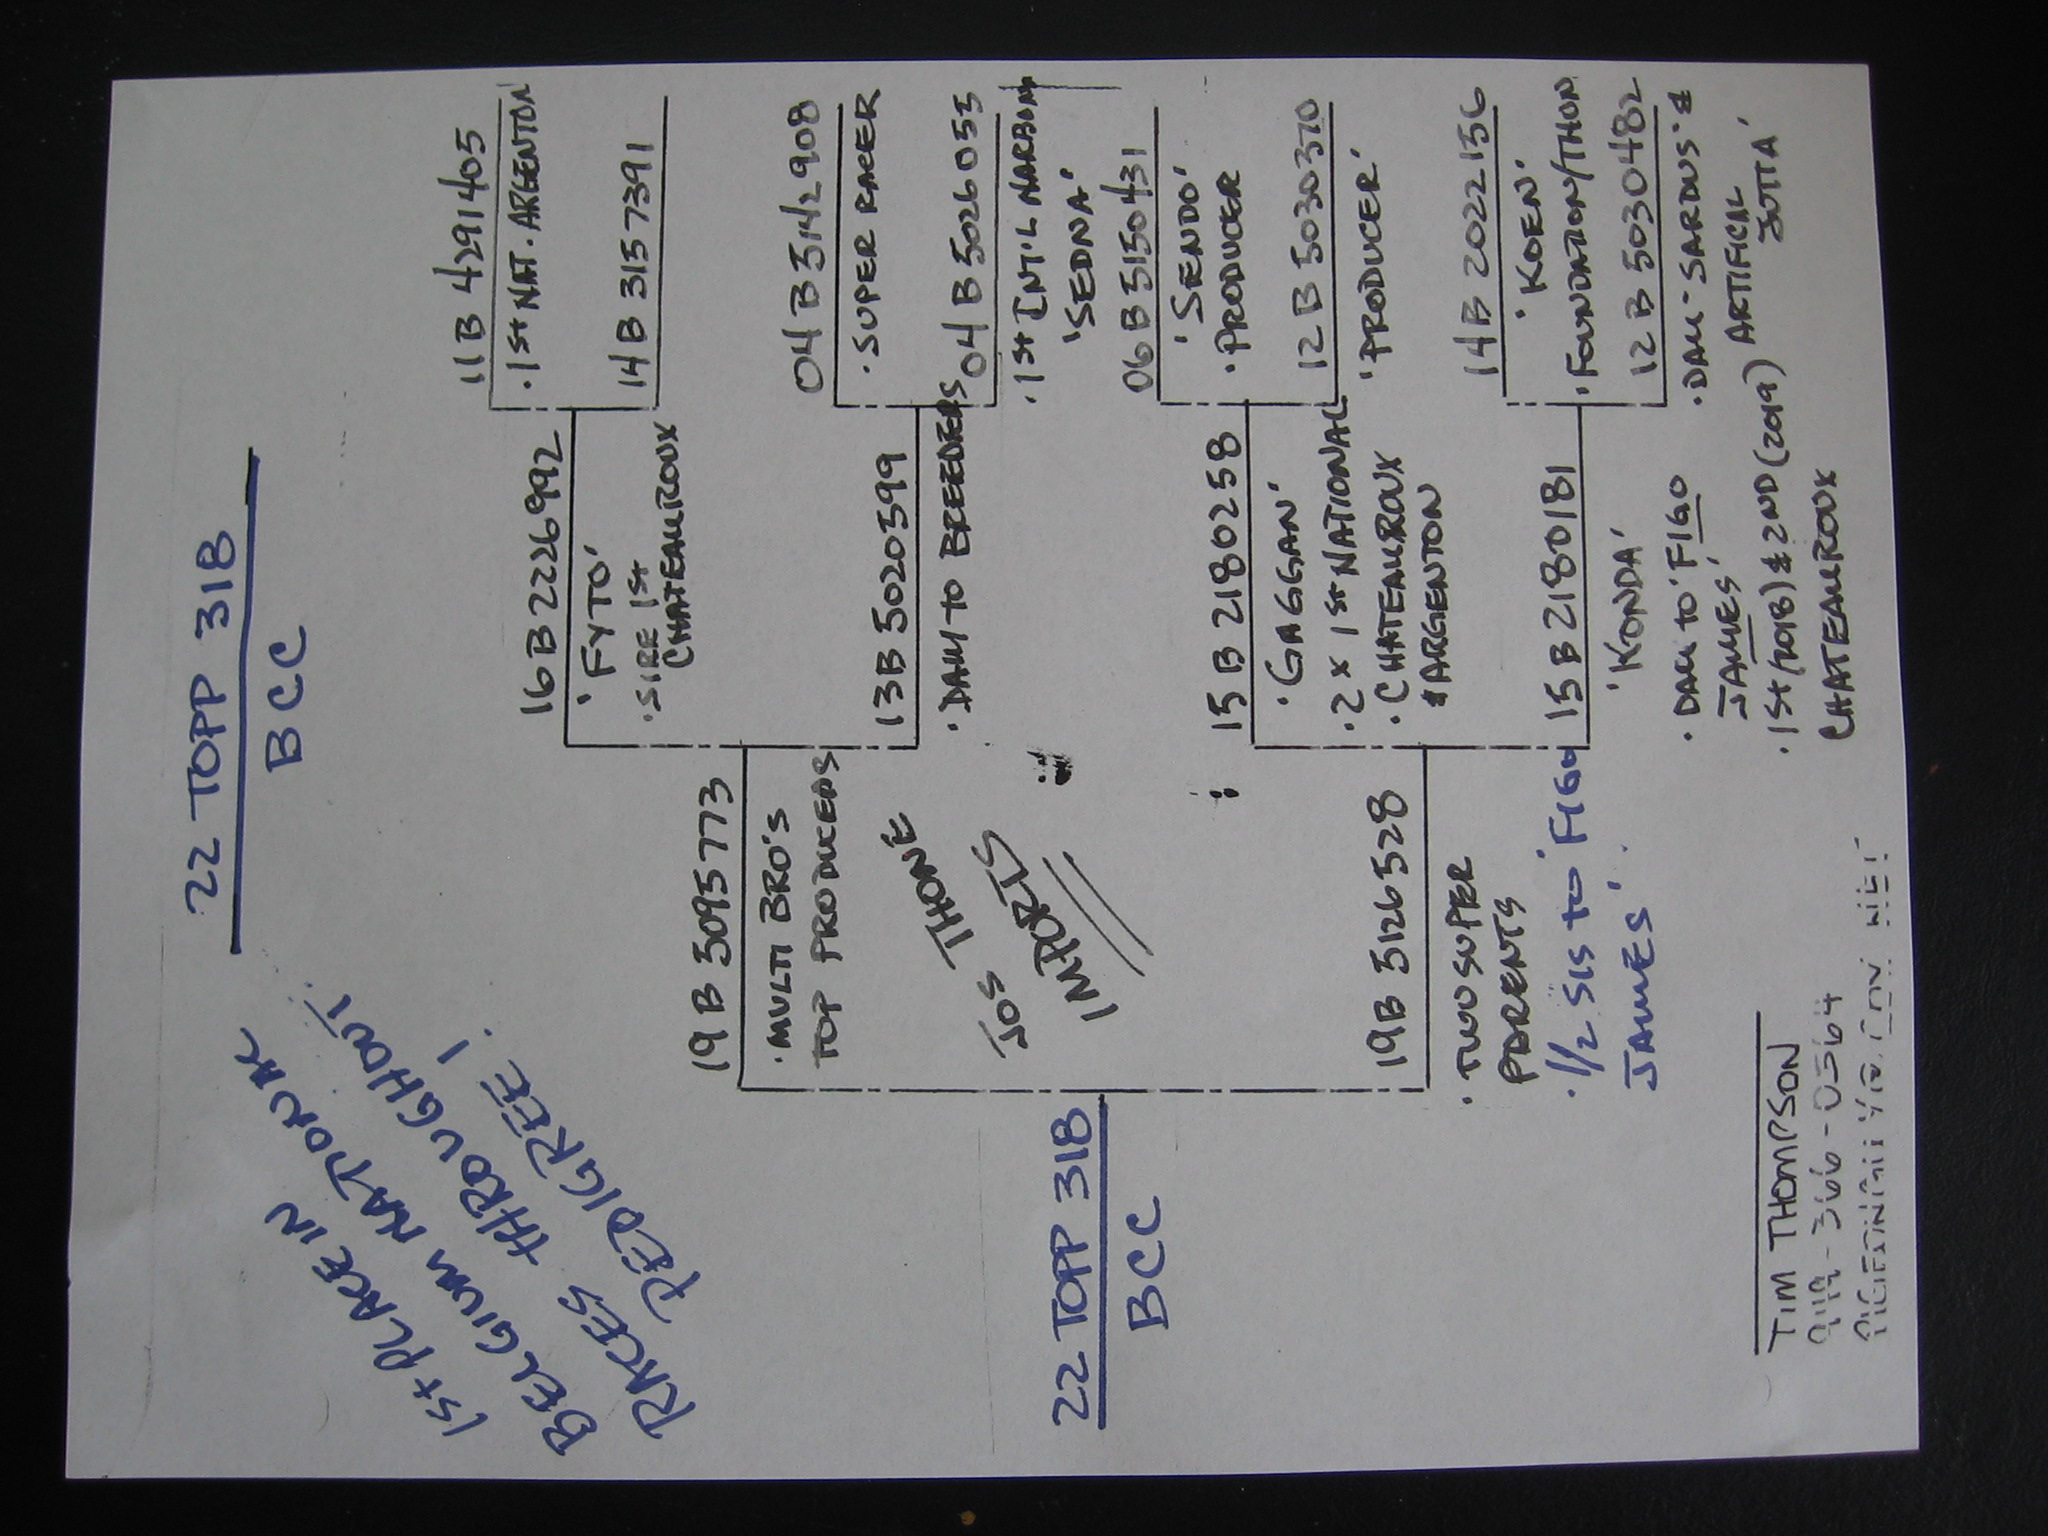 22 TOPP 318
BCC
1st PLACE IN
BELGIUM NATIONAL
RACES THROUGHOUT
PEDIGREE!
22 TOPP 318
BCC
19 B 5095773
• MULTI BRO'S
TOP PRODUCERS
JOS THONÉ
IMPORTS
19B 5126528
• TWO SUPER
PARENTS
• 1/2 SIS to 'FIGO
JAMES'
16 B 2226992
'FYTO'
• SIRE 1st
CHATEAUROUX
13B 5020399
• DAM to BREEDERS
15 B 2180258
'GAGGAN'
• 2 X 1st NATIONAL
• CHATEAUROUX
& ARGENTON
15 B 2180181
'KONDA'
• DAM to 'FIGO
JAMES'
• 1st (2018) & 2ND (2019)
CHATEAUROUX
11B 4291405
• 1st NAT. ARGENTON
14B 3157391
04 B 5142908
• SUPER RACER
04 B 5026055
• 1st INT'L NARBONNE
'SEDNA'
06 B 5150431
'SENDO'
• PRODUCER
12 B 5030370
'PRODUCER'
14 B 2022156
'KOEN'
'FOUNDATION/THON
12 B 5030482
• DAM - SARDUS' &
ARTIFICIAL
JOTTA'
TIM THOMPSON